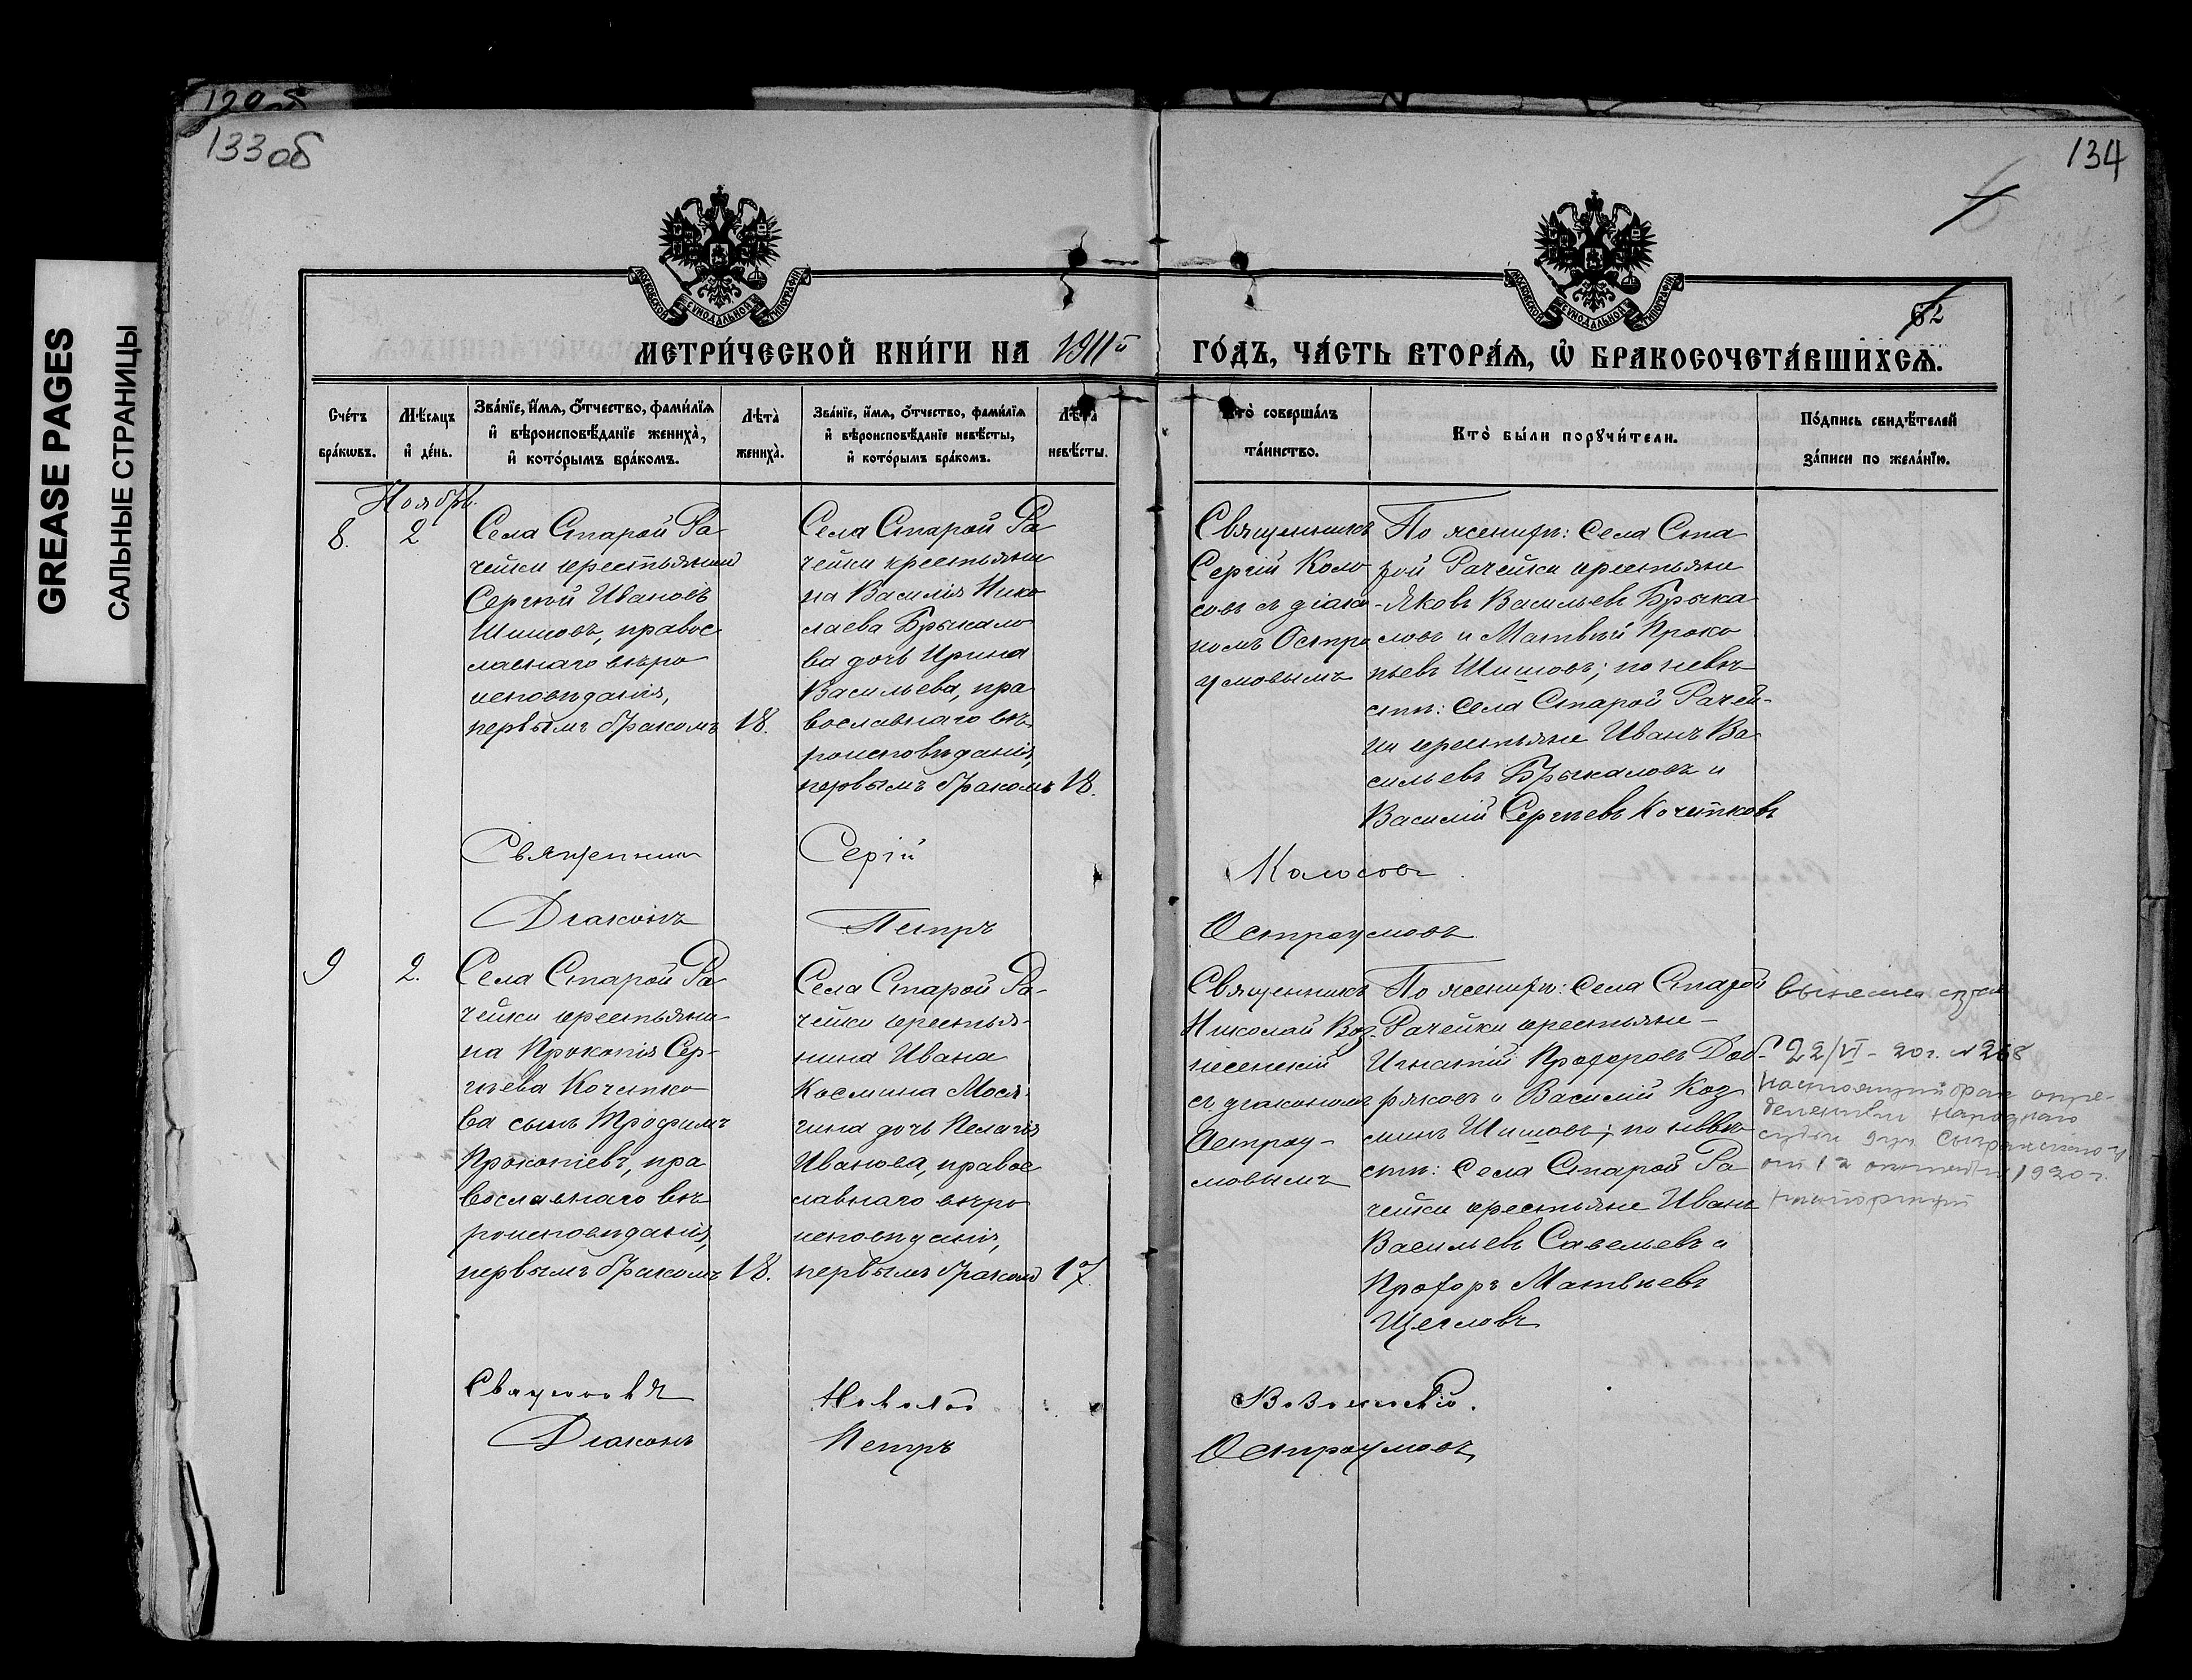 129об
133 об
134
GREASE PAGES
САЛЬНЫЕ СТРАНИЦЫ
МОСКОВСКОЙ СѴНОДАЛЬНОЙ ТИПОГРАФІИ
МОСКОВСКОЙ СѴНОДАЛЬНОЙ ТИПОГРАФІИ
62
МЕТРИ́ЧЕСКОЙ КНИ́ГИ НА 1911й ГО́ДЪ, ЧА́СТЬ ВТОРА́Я, Ѡ БРАКОСОЧЕТА́ВШИХСЯ.
Сче́тъ
бра́кωвъ.
Мѣ́сяцъ
и҆ де́нь.
Зва́нїе, и҆́мя, ѻ҆́тчество, фами́лїя
и҆ вѣроисповѣ́данїе жениха̀,
и҆ кото́рымъ бра́комъ.
Лѣта̀
жениха̀.
Зва́нїе, и҆́мя, ѻ҆́тчество, фами́лїя
и҆ вѣроисповѣ́данїе невѣ́сты,
и҆ кото́рымъ бра́комъ.
Лѣта̀
невѣ́сты.
Кто̀ соверша́лъ
та́инство.
Кто̀ бы́ли порꙋчи́тели.
По́дпись свидѣ́телей
за́писи по жела́нїю.
Ноябрь.
8.
2
Села Старой Ра
чейки крестьянин
Сергѣй Ивановъ
Шишовъ, правос
лавнаго вѣро
исповѣданія,
первымъ бракомъ
18.
Села Старой Ра
чейки крестьяни
на Василія Нико
лаева Брыкало
ва дочь Ирина
Васильева, пра
вославнаго вѣ
роисповѣданія,
первымъ бракомъ
18.
Священникъ
Сергій Коло
совъ съ діако
номъ Остро
умовымъ
По женихѣ: Села Ста
рой Рачейки крестьяне
Яковъ Васильевъ Брыка
ловъ и Матвѣй Проко
пьевъ Шишовъ; по невѣ
стѣ: Села Старой Рачей-
ки крестьяне Иванъ Ва
сильевъ Брыкаловъ и
Василій Сергѣевъ Кочетковъ
Священник Сергій Колосовъ
Діаконъ Петръ Остроумовъ
9
2.
Села Старой Ра
чейки крестьяни-
на Прокопія Сер-
гѣева Кочетко
ва сынъ Трофимъ
Прокопіевъ, пра
вославнаго вѣ
роисповѣданія,
первымъ бракомъ
18.
Села Старой Ра-
чейки крестья-
нина Ивана
Космина Мося
гина дочь Пелагія
Иванова, правос
лавнаго вѣро
исповѣданія,
первымъ бракомъ
17.
Священникъ
Николай Воз-
несенскій
съ діакономъ
Остроу-
мовымъ
По женихѣ: Села Старой
Рачейки крестьяне-
Игнатій Прохоровъ Доб-
ряковъ и Василій Коз
минъ Шишовъ; по невѣ
стѣ: Села Старой Ра
чейки крестьяне Иванъ
Васильевъ Савельевъ и
Прохоръ Матвѣевъ
Щегловъ
22/VI - 20 г. № 268
Настоящий брак опре-
делением народного
судьи 9 уч. Сызранского у
от 12 1920 г.
расторгнут
Священникъ Николай Вознесенскій.
Діаконъ Петръ Остроумовъ